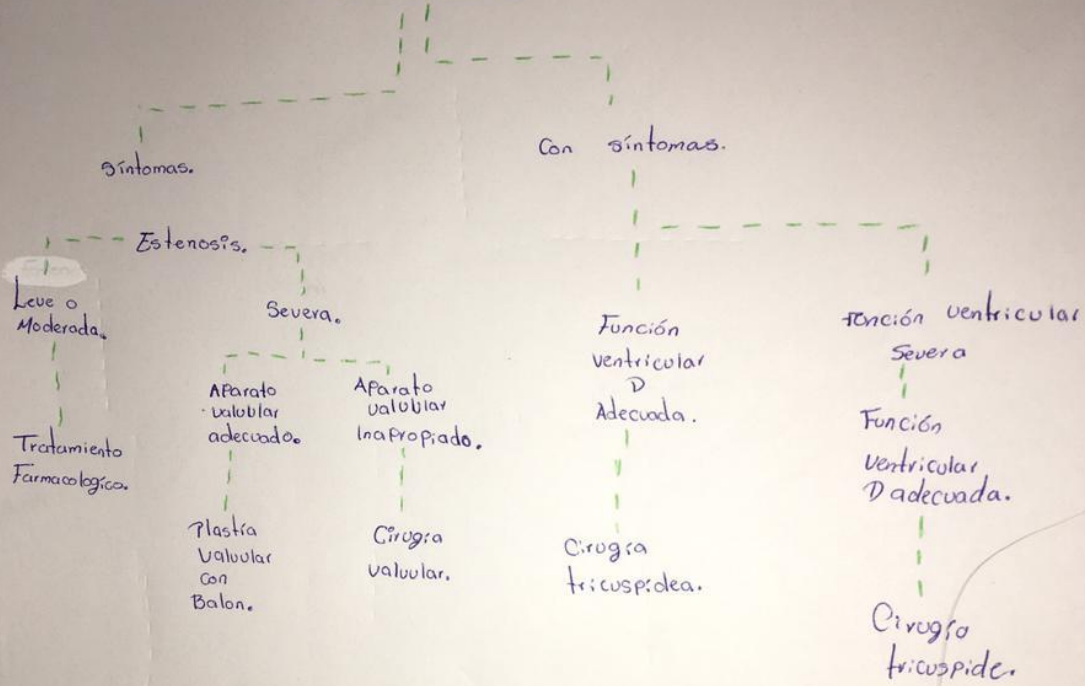 síntomas.
Con síntomas.
Estenosis.
Leve o
Moderada.
Tratamiento
Farmacologico.
Severa.
Aparato
valublar
adecuado.
Plastía
valvular
con
Balon.
Aparato
valublar
Inapropiado.
Cirugía
valvular.
Función
ventricular
D
Adecuada.
Cirugía
tricuspidea.
Función ventricular
Severa
Función
ventricular
D adecuada.
Cirugía
tricuspide.